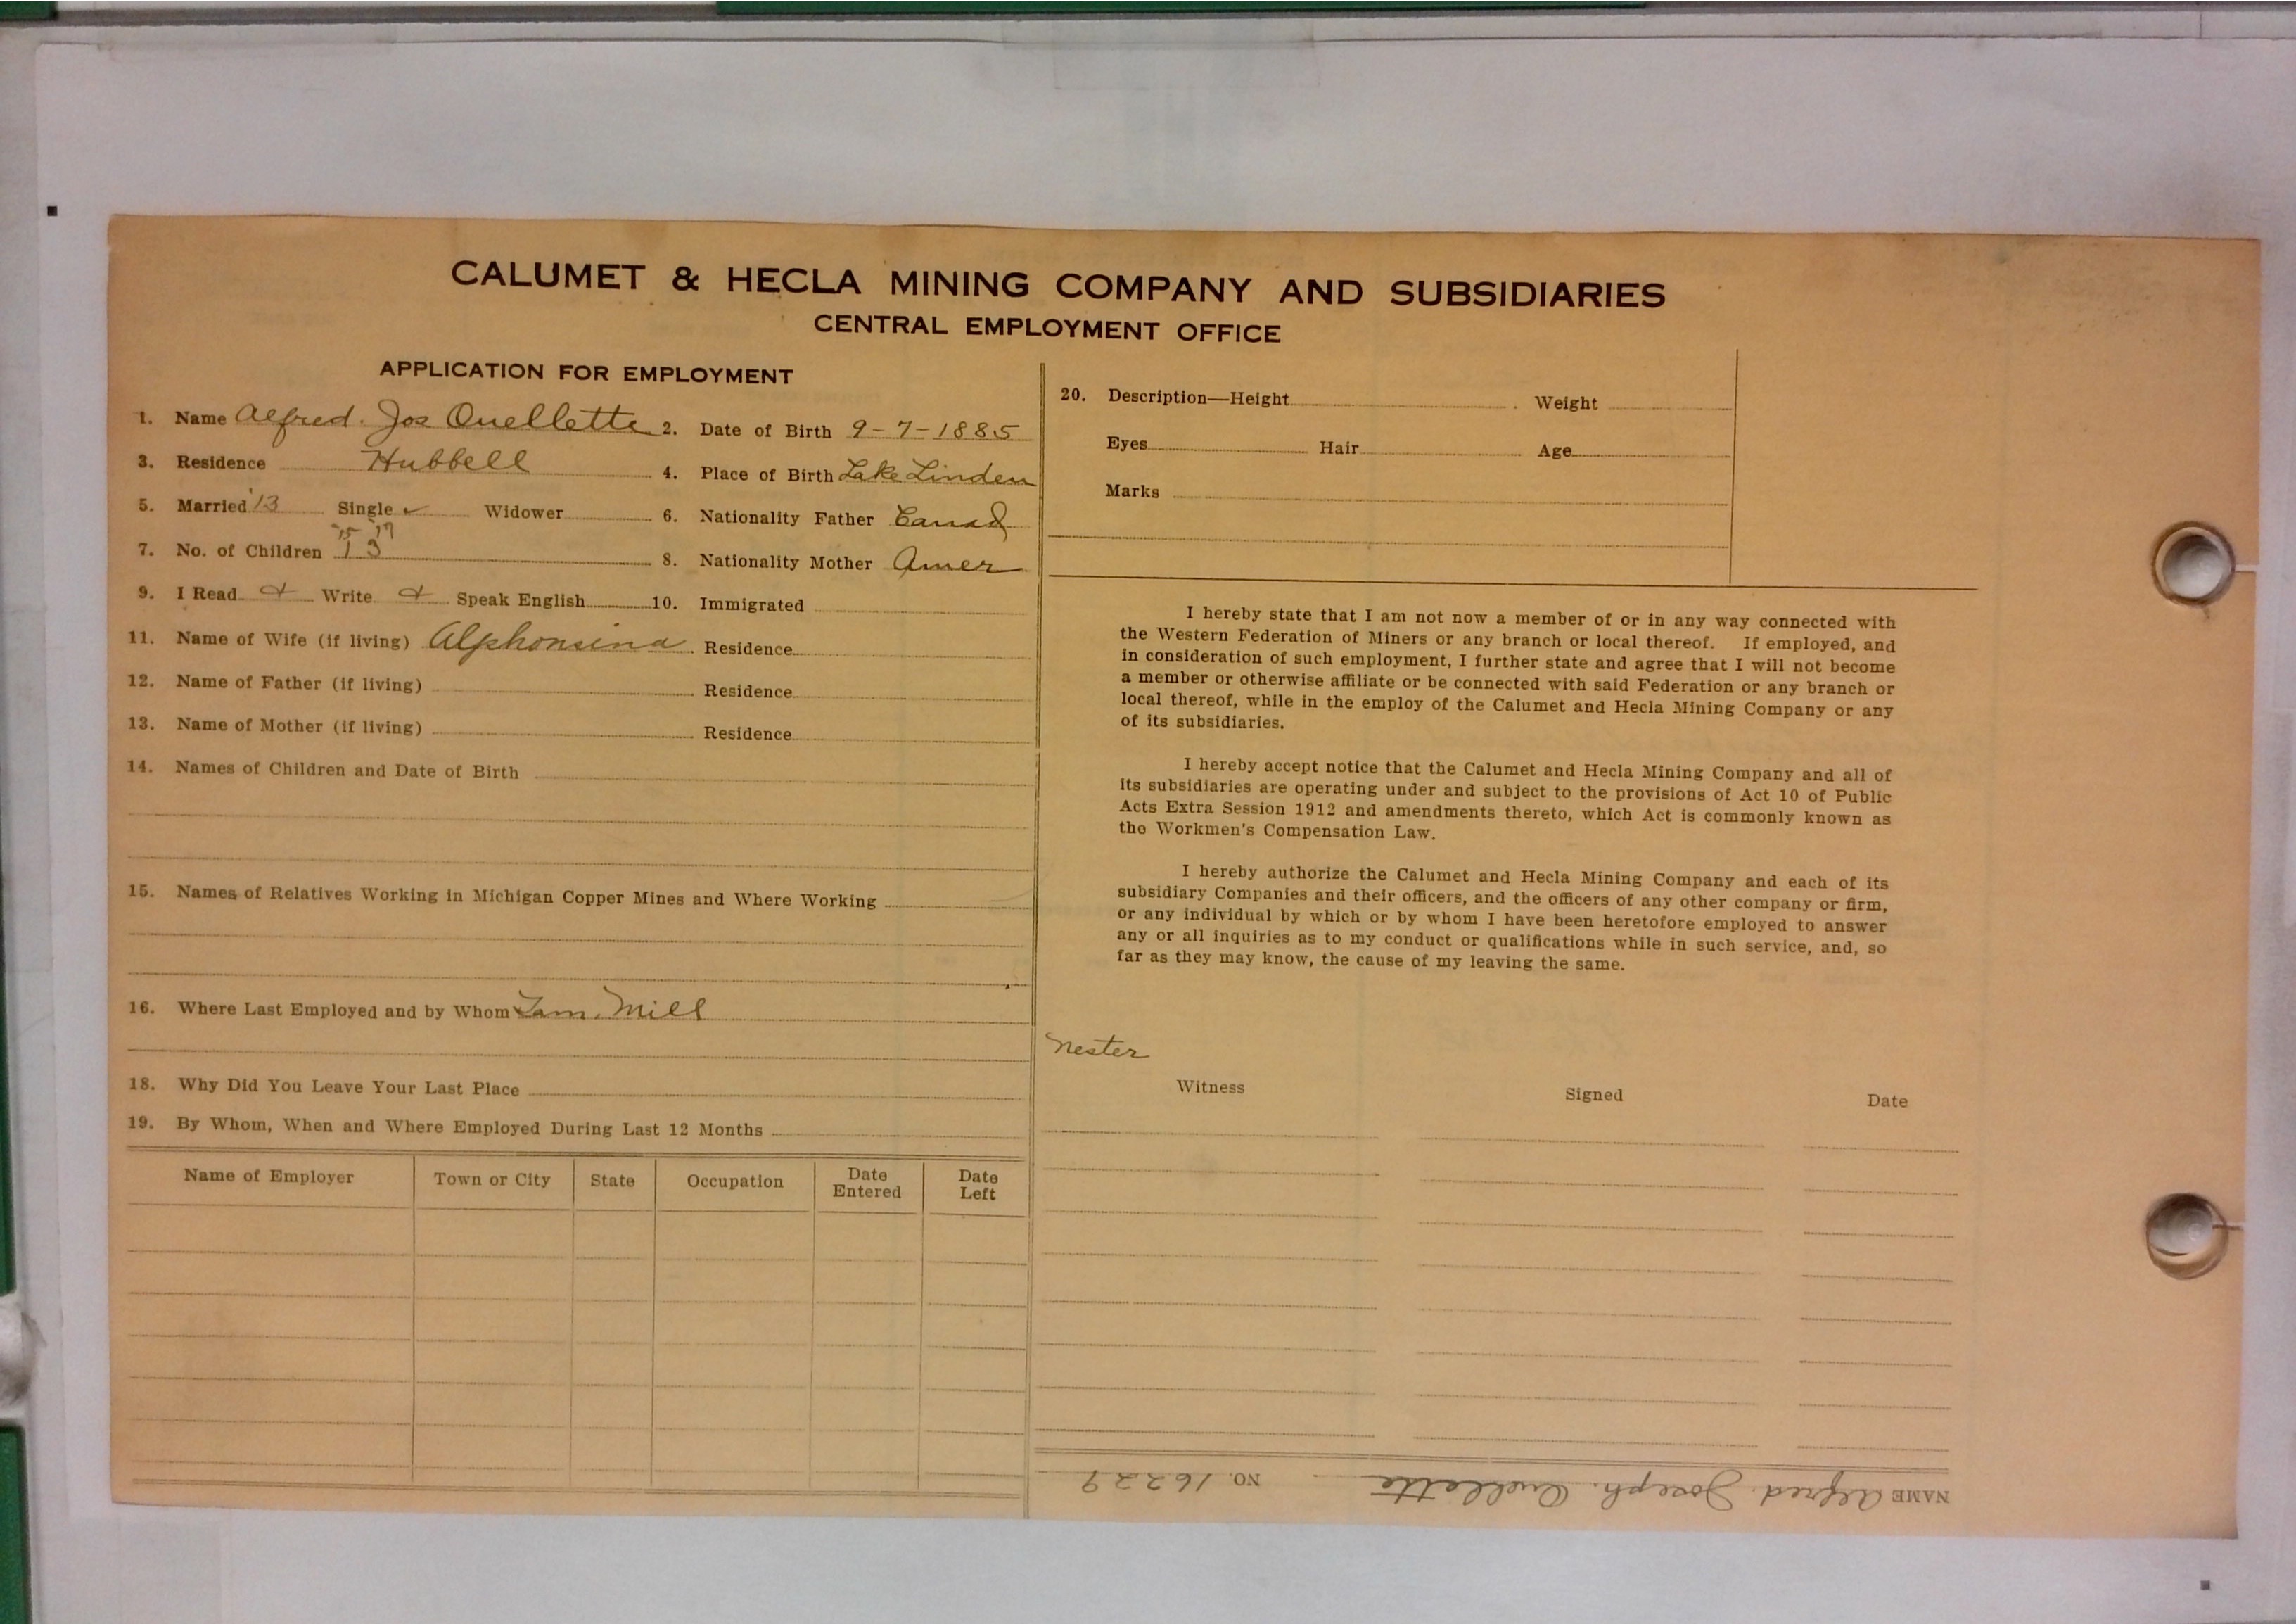 CALUMET & HECLA MINING COMPANY AND SUBSIDIARIES
CENTRAL EMPLOYMENT OFFICE
APPLICATION FOR EMPLOYMENT
1. Name Alfred. Jos Ouellette 2. Date of Birth 9-7-1885
3. Residence Hubbell 4. Place of Birth Lake Linden
5. Married '13 Single ✓ Widower 6. Nationality Father Canad
'15 '17
7. No. of Children 1 3 8. Nationality Mother Amer
9. I Read & Write & Speak English 10. Immigrated
11. Name of Wife (if living) Alphonsina Residence
12. Name of Father (if living) Residence
13. Name of Mother (if living) Residence
14. Names of Children and Date of Birth
15. Names of Relatives Working in Michigan Copper Mines and Where Working
16. Where Last Employed and by Whom Tam. Mill
18. Why Did You Leave Your Last Place
19. By Whom, When and Where Employed During Last 12 Months
Name of Employer Town or City State Occupation Date Entered Date Left
20. Description—Height Weight
Eyes Hair Age
Marks
I hereby state that I am not now a member of or in any way connected with
the Western Federation of Miners or any branch or local thereof. If employed, and
in consideration of such employment, I further state and agree that I will not become
a member or otherwise affiliate or be connected with said Federation or any branch or
local thereof, while in the employ of the Calumet and Hecla Mining Company or any
of its subsidiaries.
I hereby accept notice that the Calumet and Hecla Mining Company and all of
its subsidiaries are operating under and subject to the provisions of Act 10 of Public
Acts Extra Session 1912 and amendments thereto, which Act is commonly known as
the Workmen's Compensation Law.
I hereby authorize the Calumet and Hecla Mining Company and each of its
subsidiary Companies and their officers, and the officers of any other company or firm,
or any individual by which or by whom I have been heretofore employed to answer
any or all inquiries as to my conduct or qualifications while in such service, and, so
far as they may know, the cause of my leaving the same.
Nester
Witness Signed Date
NAME Alfred. Joseph. Ouellette NO. 16229